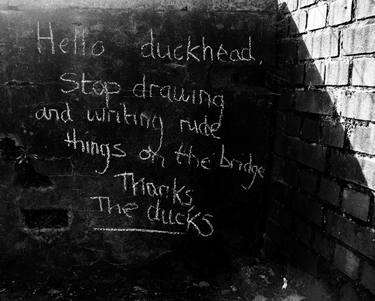 Hello duckhead.
Stop drawing
and writing rude
things on the bridge
Thanks
The ducks